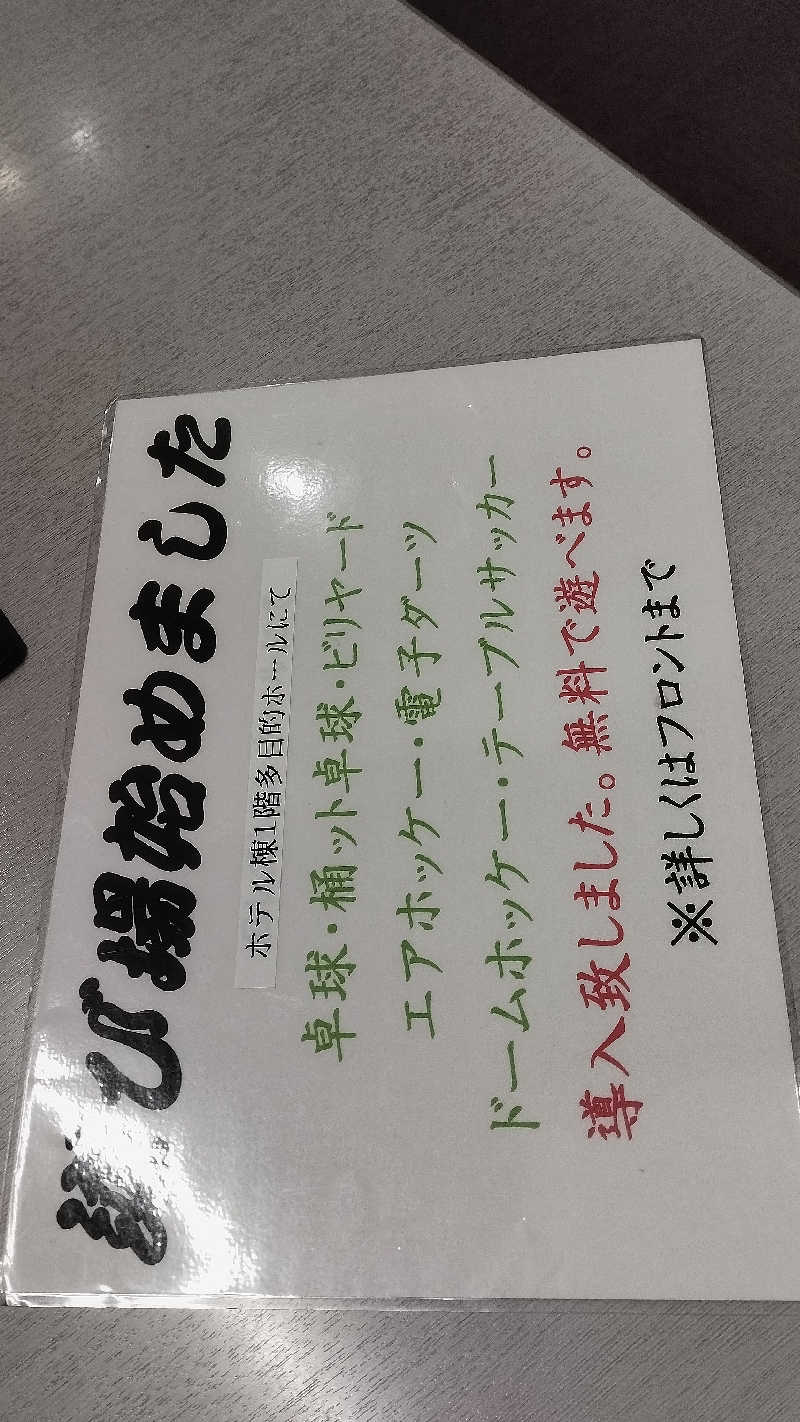 遊び場始めました
ホテル棟1階多目的ホールにて
卓球・桶ット卓球・ビリヤード
エアホッケー・電子ダーツ
ドームホッケー・テーブルサッカー
導入致しました。無料で遊べます。
※詳しくはフロントまで